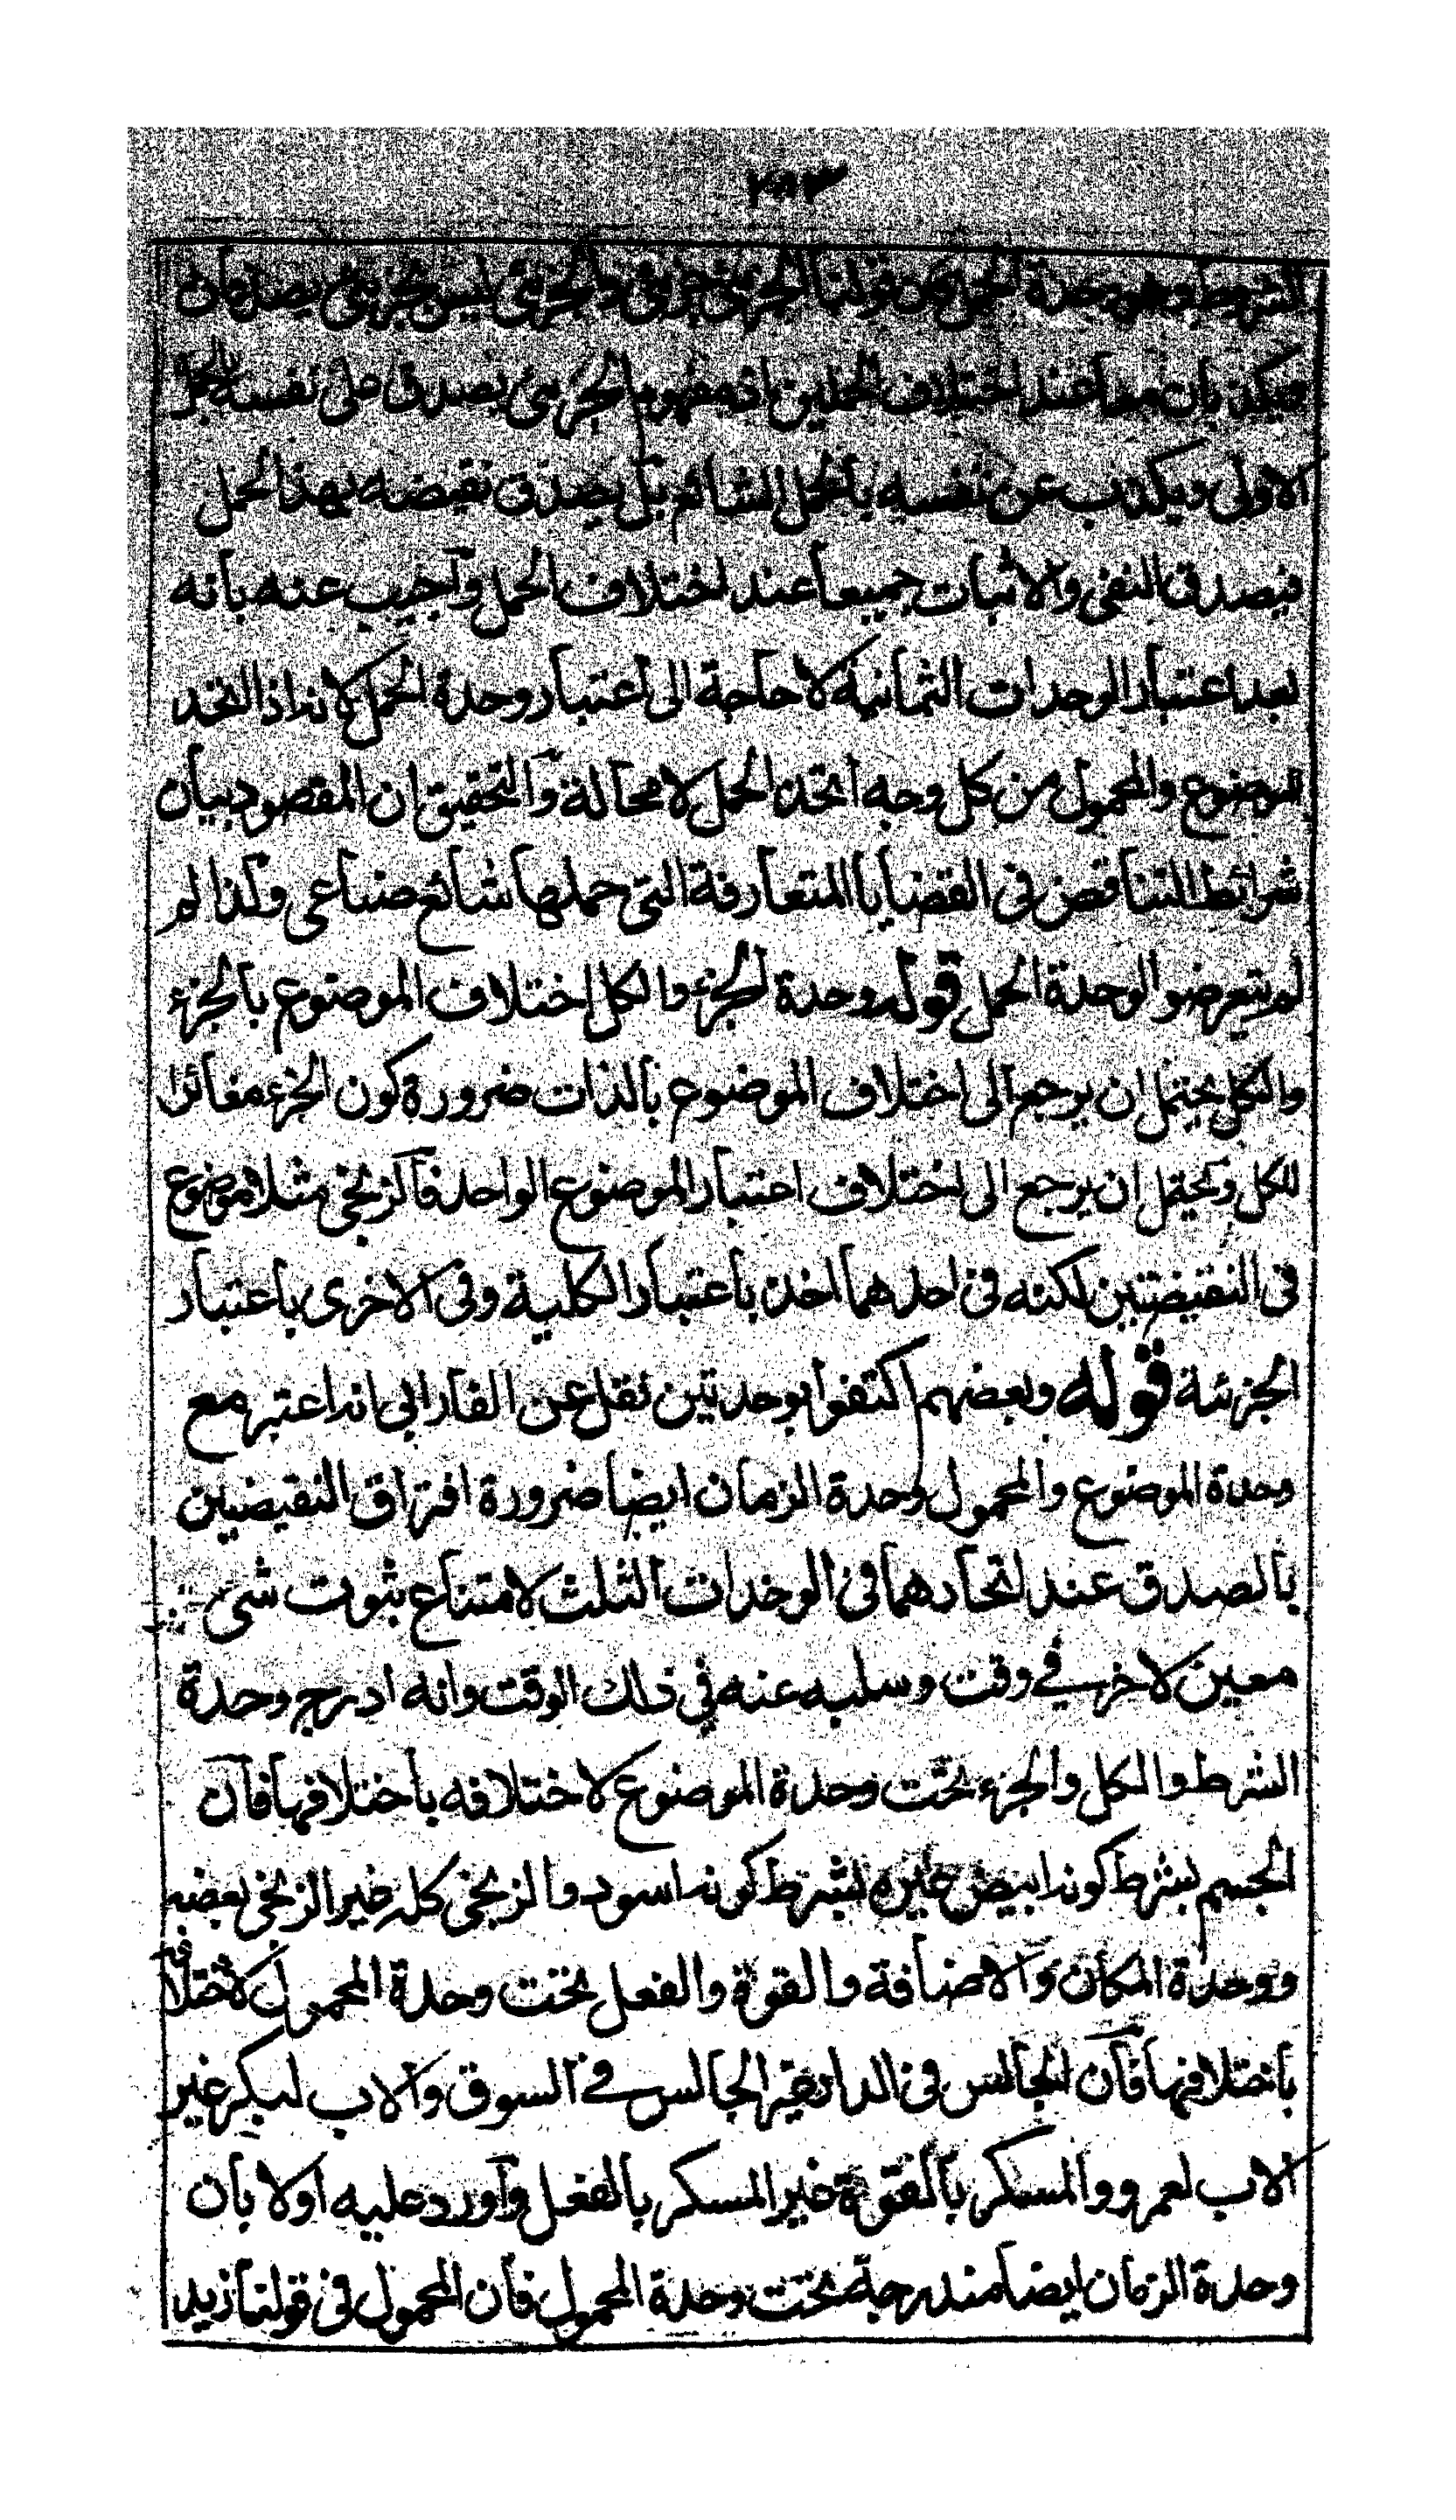 ٢٥٣
الشروط وهو وحدة الحمل لان قولنا الجزئي جزئي والجزئي ليس بجزئي يصدقان
ويكذبان معا عند اختلاف الحملين اذ مفهوم الجزئي يصدق على نفسه بالحمل
الاولى ويكذب عن نفسه بالحمل الشائع بل يصدق نقيضه بهذا الحمل
فيصدق النفى والاثبات جميعا عند اختلاف الحمل وآجيب عنه بانه
بعد اعتبار الوحدات الثمانية لا حاجة الى اعتبار وحدة الحمل لانه اذا اتحد
الموضوع والمحمول من كل وجه اتحد الحمل لا محالة وآلتحقيق ان المقصود بيان
شرائط التناقض فى القضايا المتعارفة التى حملها شائع صناعى ولذا لم
لم يتعرضوا لوحدة الحمل قوله وحدة الجزء والكل اختلاف الموضوع بالجزء
والكل يحتمل ان يرجع الى اختلاف الموضوع بالذات ضرورة كون الجزء مغائرا
للكل ويحتمل ان يرجع الى اختلاف اعتبار الموضوع الواحد فآلزنجى مثلا موضوع
فى النقيضتين لكنه فى احدهما اخذ باعتبار الكلية وفى الاخرى باعتبار
الجزئية قوله وبعضهم اكتفوا بوحدتين نقل عن الفارابى انه اعتبر مع
وحدة الموضوع والمحمول وحدة الزمان ايضا ضرورة افتراق النقيضين
بالصدق عند اتحادهما فى الوحدات الثلث لامتناع ثبوت شى
معين لاخر فے وقت وسلبه عنه فى ذلك الوقت وانه ادرج وحدة
الشرط والكل والجزء تحت وحدة الموضوع لاختلافه باختلافها فآن
الجسم بشرط كونه ابيض غيره بشرط كونه اسود والزنجى كله غير الزنجى بعضه
ووحدة المكان وآلاضافة والقوة والفعل تحت وحدة المحمول لاختلافه
باختلافها فآن الجالس فى الدار غير الجالس فے السوق وآلاب لبكر غير
الاب لعمرو والمسكر بالقوة غير المسكر بالفعل وآورد عليه اولا بان
وحدة الزمان ايضا مندرجة تحت وحدة المحمول فان المحمول فى قولنا زيد